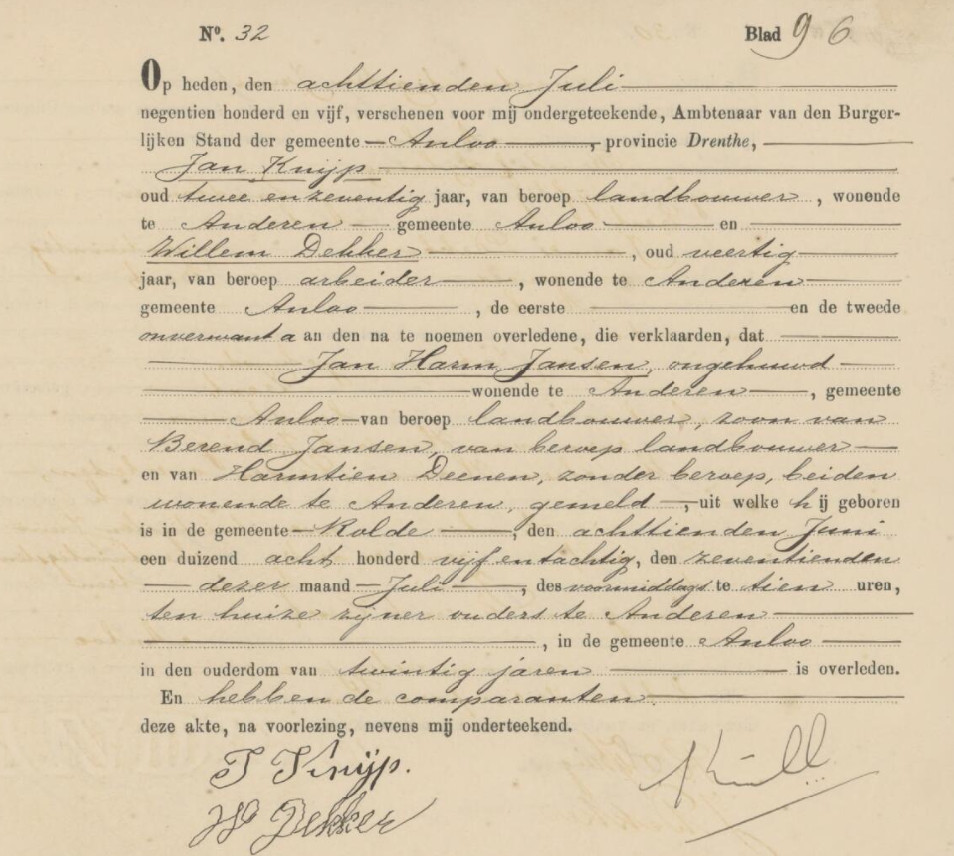 No. 32 Blad 96
Op heden, den achttienden Juli
negentien honderd en vijf, verschenen voor mij ondergeteekende, Ambtenaar van den Burger-
lijken Stand der gemeente Anloo, provincie Drenthe,
Jan Knijp
oud twee en zeventig jaar, van beroep landbouwer, wonende
te Anderen gemeente Anloo en
Willem Dekker, oud veertig
jaar, van beroep arbeider, wonende te Anderen
gemeente Anloo, de eerste en de tweede
onverwant aan den na te noemen overledene, die verklaarden, dat
Jan Harm Jansen, ongehuwd
wonende te Anderen, gemeente
Anloo van beroep landbouwer, zoon van
Berend Jansen, van beroep landbouwer
en van Harmtien Deenen, zonder beroep, beiden
wonende te Anderen, gemeld, uit welke hij geboren
is in de gemeente Rolde, den achttienden Juni
een duizend acht honderd vijf en tachtig, den zeventienden
dezer maand Juli, des voormiddags te tien uren,
ten huize zijner ouders te Anderen
, in de gemeente Anloo
in den ouderdom van twintig jaren is overleden.
En hebben de comparanten
deze akte, na voorlezing, nevens mij onderteekend.
J Knijp.
W Dekker